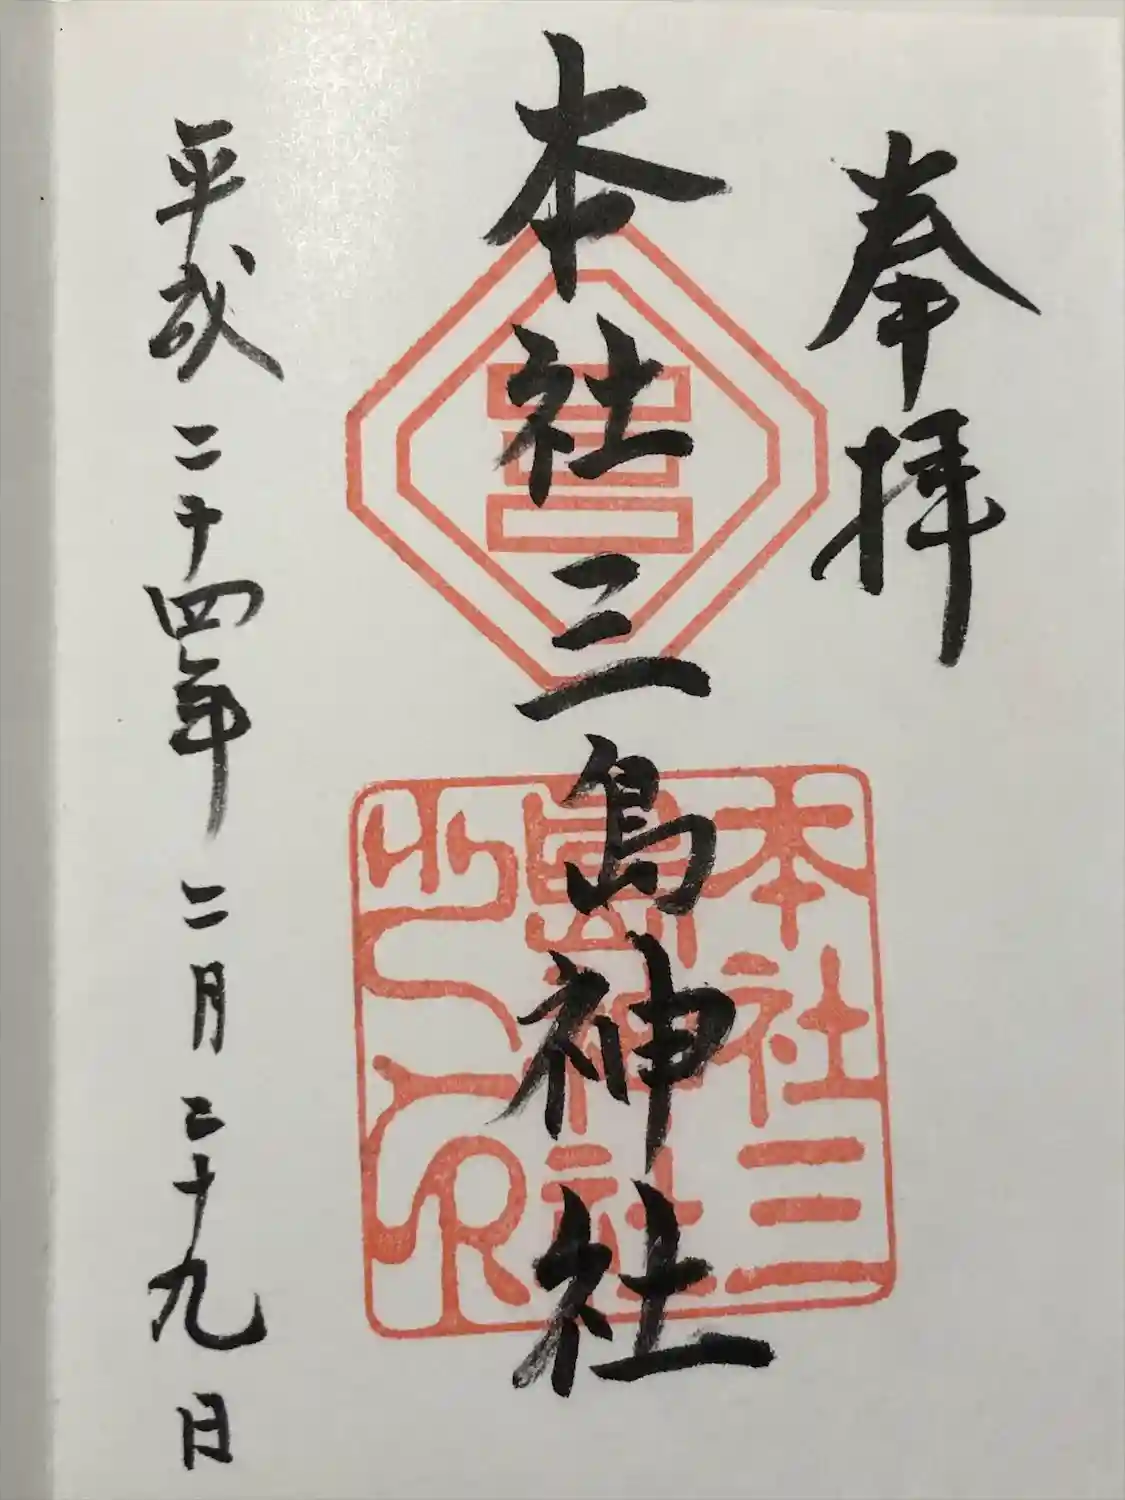 奉拝
本社三島神社
平成二十四年二月二十九日
本社三
島神社
之印